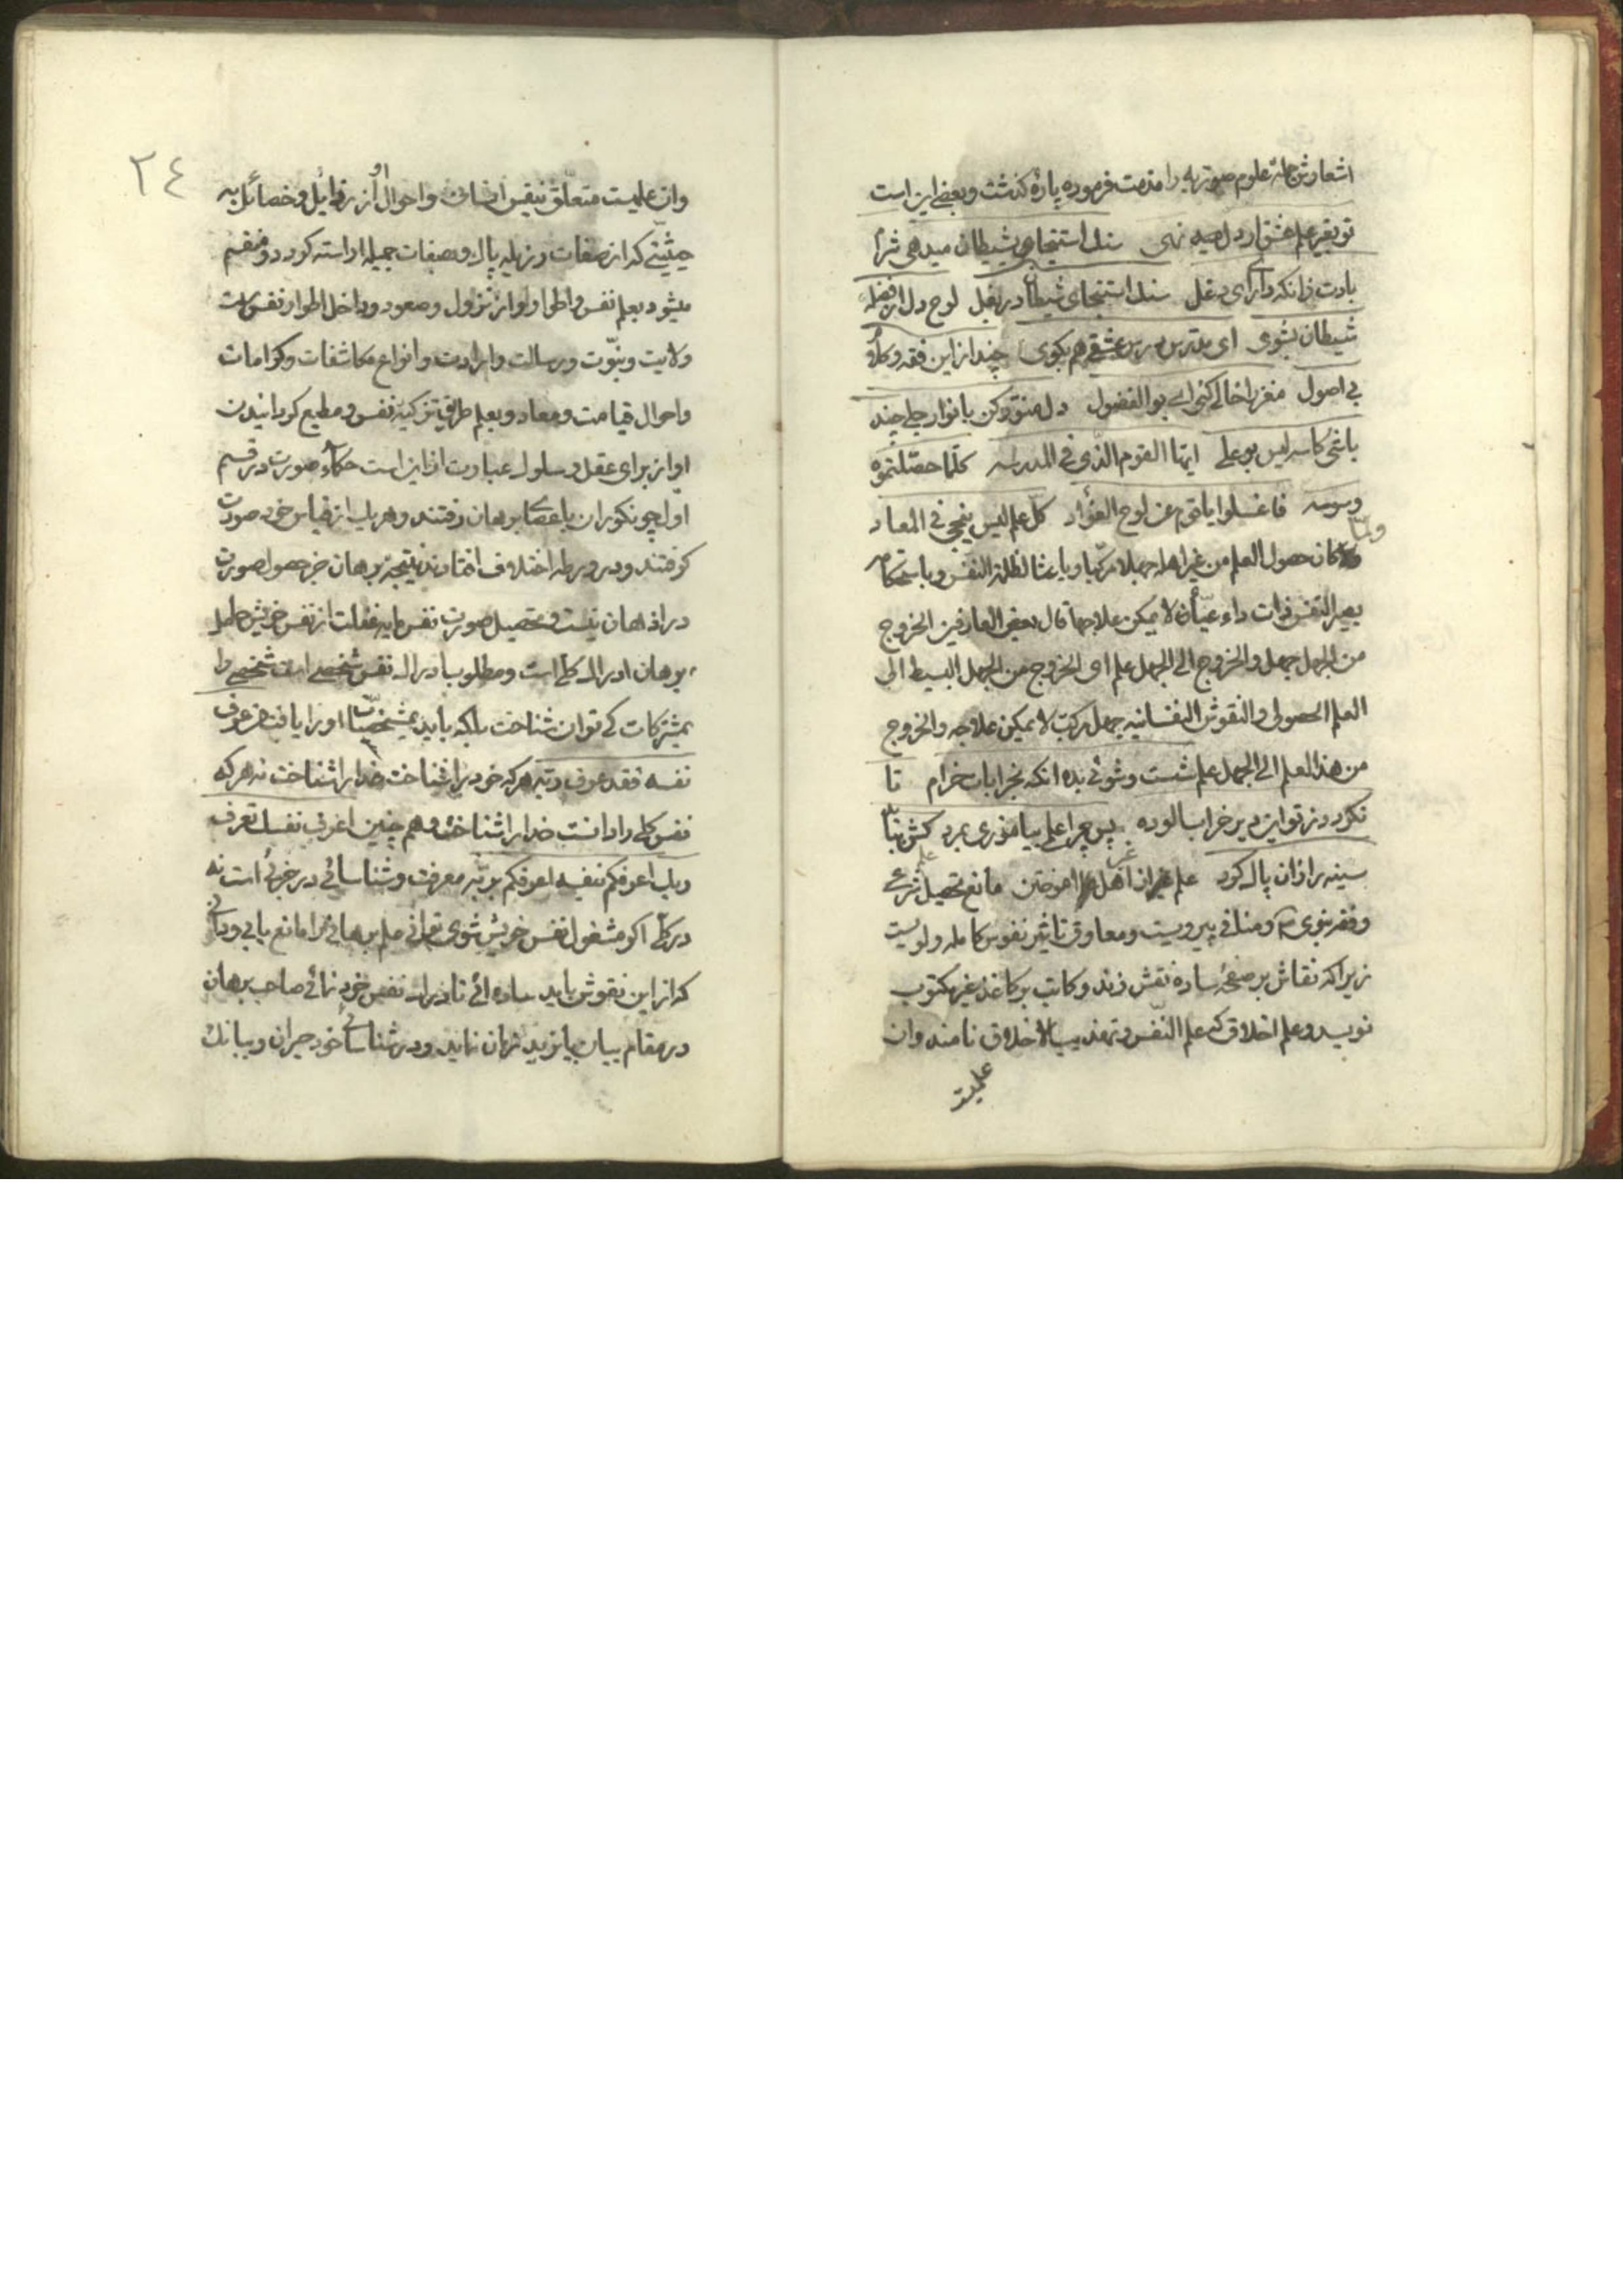 اشعارش جمله علوم صوریه را مذمت فرموده پاره گذشت و بعضی این است
تو بغیر علم عشق ار دل نهی سنك استنجای بشیطان میدهی شرم
بادت زانکه داری ای دغل سنك استنجای شیطان در بغل لوح دل از فضله
شیطان بشوی ای مدرس درس عشقی هم بکوی چند از این فقه و کلام
بی اصول مغز را خالی کنی ای بو الفضول دل منور کن بانوار جلی چند
باشی کاسه لیس بو علی ایها القوم الذی فی المدرسه کلما حصلتموه
وسوسه فاغسلوا یا قوم عن لوح الفؤاد کل علم لیس ینجی فی المعاد
ولما کان حصول العلم من غیر اهله جهلا مرکبا و باعثا لظلمة النفس و باستحکامه
یصیر النفس ذات داء عیاء لا یمکن علاجها قال بعض العارفین الخروج
من الجهل جهل و الخروج الی الجهل علم ای الخروج من الجهل البسیط الی
العلم الحصولی و النقوش النفسانیه جهل مرکب لا یمکن علاجه و الخروج
من هذا العلم الی الجهل علم شست و شوئی بده انکه بخرابات خرام تا
نکردد ز تو این دیر خراب الوده پس چرا علمی بیاموزی بمرد کش بباید
سینه را زان پاك کرد علم از غیر اهل علم اموختن مانع تحصیل شرعی
و فقر نبوی ص و منافی پیرویست و معاوق تاثیر نفوس کامله ولویست
زیرا که نقاش بر صفحه ساده نقش زند و کاتب بر کاغذ غیر مکتوب
نویسد و علم اخلاق که علم النفس و تهذیب الاخلاق نامند وان
علمیست
٢٤
وان علمیست متعلق بنفس انسانی و احوال او از رذائل و خصائل به
حیثیتی که از صفات رذیله پاك و بصفات جمیله اراسته کردد و منقسم
میشود بعلم نفس و اطوار او از نزول و صعود و داخل اطوار نفس است
ولایت و نبوت و رسالت و ارادت و انواع مکاشفات و کرامات
و احوال قیامت و معاد و بعلم طریق تزکیه نفس و مطیع کردانیدن
او از برای عقل و سلوك عبارت از این است حکماء صورت در قسم
اول چو نکوران با عصای برهان رفتند و هر یك از قیاس خود صورت
کرفتند و در ورطه اختلاف افتادند نتیجه برهان جز حصول صورت
در اذهان نیست و تحصیل صورت نفس مایه غفلت از نفس خویش حاصل
برهان ادراك کلی است و مطلوب ادراك نفس شخصی است شخصی را
بمشترکات کی توان شناخت بلکه باید بمشخصات او را یافت من عرف
نفسه فقد عرف ربه هر که خود را شناخت خدا را شناخت نه هر که
نفس کلی را دانست خدا را شناخت و هم چنین اعرف نفسك تعرف
ربك اعرفکم بنفسه اعرفکم بربه معرفت و شناسائی در جزئی است نه
در کلی اکر مشغول نفس خویش شوی علم برهانی را مانع یابی و دانی
که از این نقوش باید ساده ائی تا ادراك نفس خود نمائی صاحب برهان
در مقام بیان پا نزدیك نهان نماید و در شناسائی خود حیران و ببانك